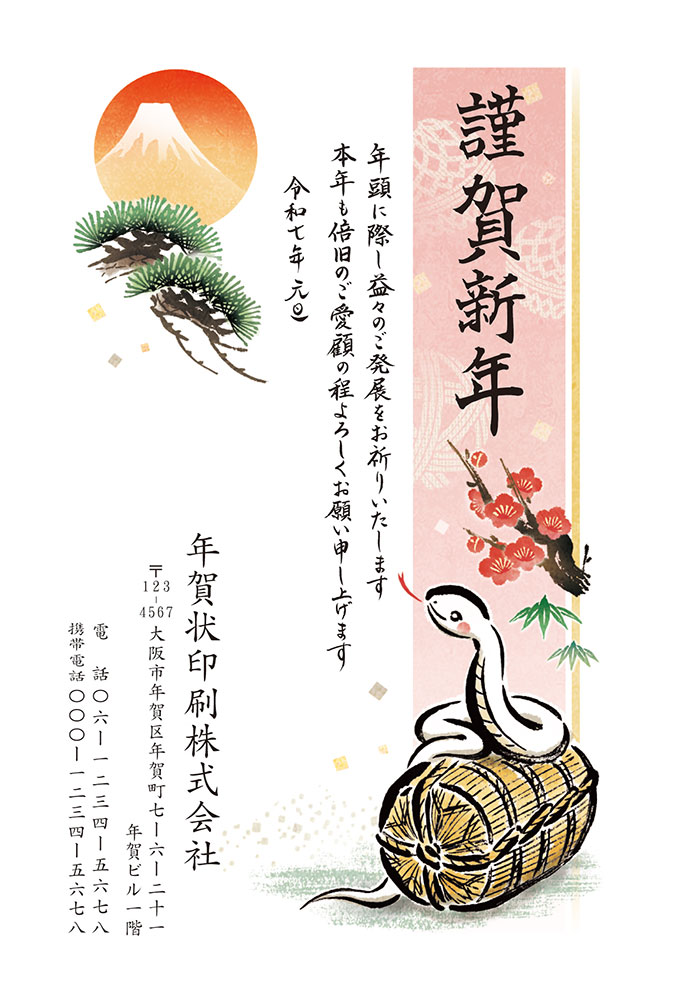 謹賀新年
年頭に際し益々のご発展をお祈りいたします
本年も倍旧のご愛顧の程よろしくお願い申し上げます
令和七年 元日
年賀状印刷株式会社
〒123-4567 大阪市年賀区年賀町七ー六ー二十一
年賀ビル一階
電話 〇六ー一二三四ー五六七八
携帯電話 〇〇〇ー一二三四ー五六七八